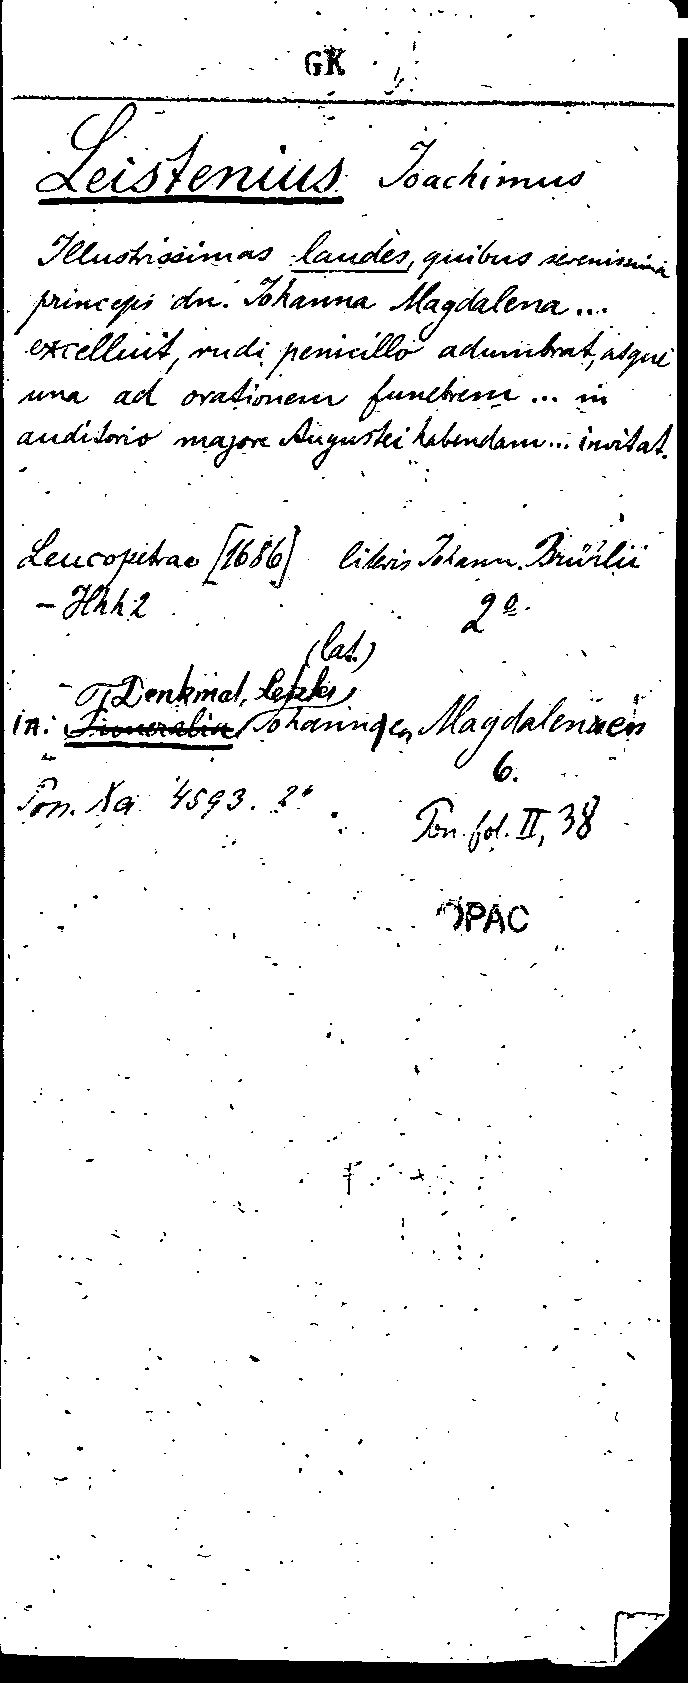 GK
Leistenius Joachimus
Illustrissimas laudes, quibus serenissima
princeps dn. Johanna Magdalena ...
excelluit, rudi penicillo adumbrat, atque
una ad orationem funebrem ... in
auditorio majore Augustei habendam ... invitat.
Leucopetrae [1686] literis Johann. Brühlii
– Hhh2 2°
(lat.)
Denkmal, letztes
in: Funeralia Johannaen Magdalenaen
6.
Pon. Xa 4593. 2°
Pon. fol. II, 38
OPAC